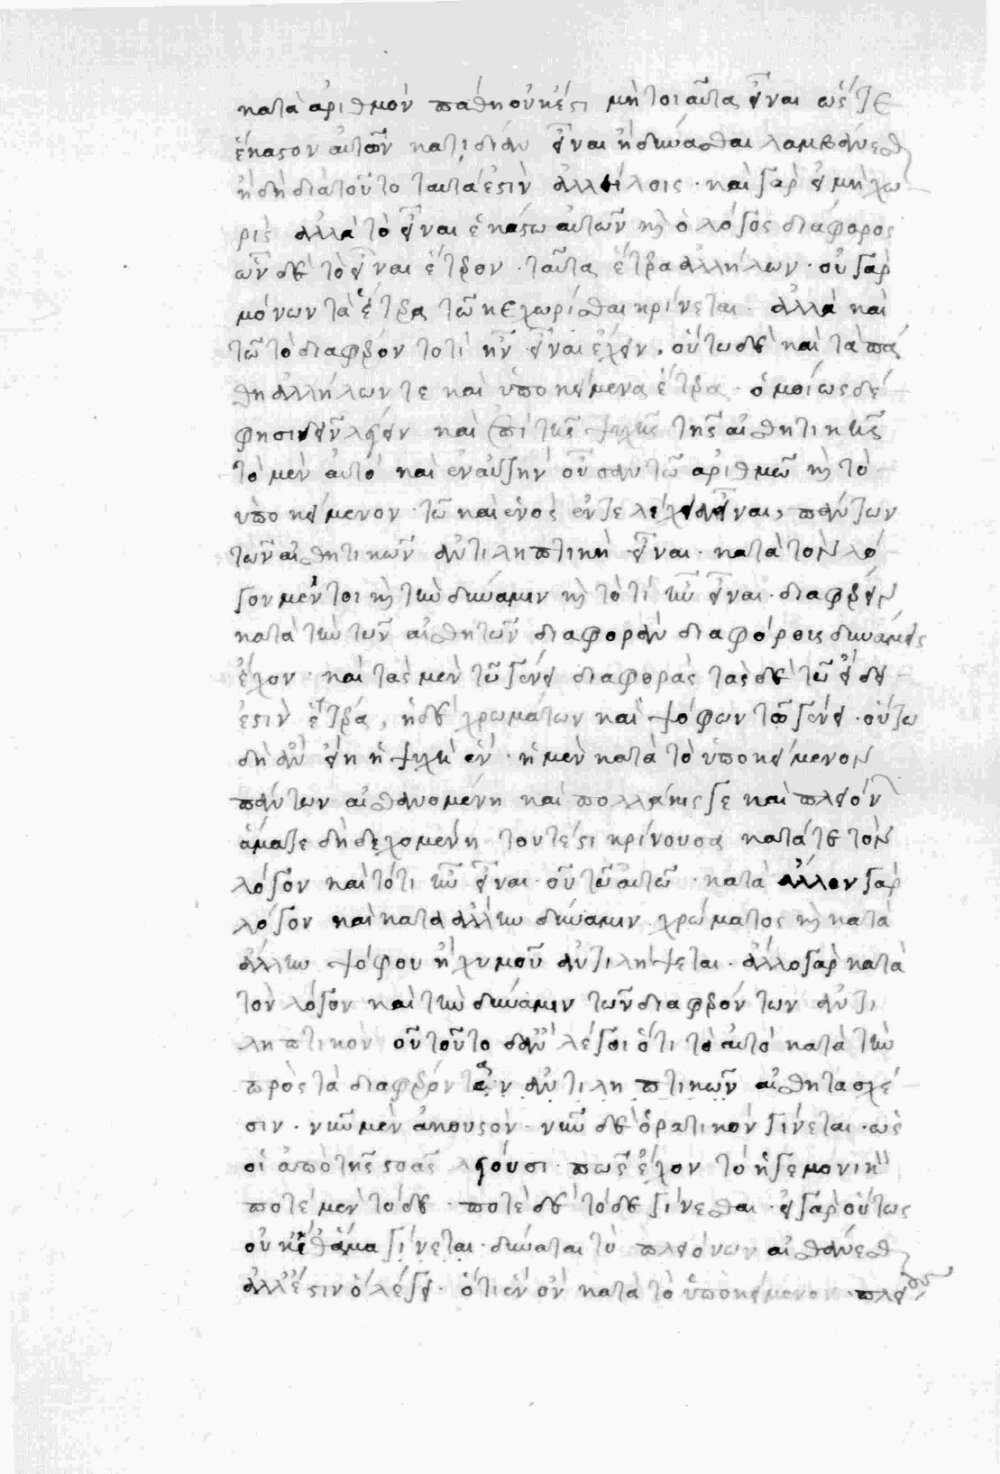 κατὰ ἀριθμὸν πάθη οὐκέτι μὴ τοιαῦτα εἶναι ὥστε
ἕκαστον αὐτῶν κατιδίαν εἶναι ἢ δύνασθαι λαμβάνεσθαι
ἤδη διατοῦτο ταυτά ἐστιν ἀλλήλοις · καὶ γὰρ εἰ μὴ χω
ρὶς ἀλλὰ τὸ εἶναι ἑκάστω αὐτῶν καὶ ὁ λόγος διάφορος
ὧν δὲ τὸ εἶναι ἕτερον · ταῦτα ἕτερα ἀλλήλων · οὐ γὰρ
μόνων τὰ ἕτερα τῶ κεχωρίσθαι κρίνεται · ἀλλὰ καὶ
τῶ τὸ διαφέρον τοτὶ ἦν εἶναι ἔχειν · οὕτω δὲ καὶ τὰ πά
θη ἀλλήλων τε καὶ ὑποκείμενα ἕτερα · ὁμοίως δέ
φησιν λέγειν καὶ ἐπὶ τῆς ψυχῆς τῆς αἰσθητικῆς
τὸ μὲν αὐτὸ καὶ ἓν αὐτὴν οὖσαν τῶ ἀριθμῶ καὶ τὸ
ὑποκείμενον · τῶ καὶ ἑνὸς ἐντελέχειαν εἶναι, πάντων
τῶν αἰσθητικῶν ἀντιληπτικὴ εἶναι · κατὰ τὸν λό
γον μέντοι καὶ τὴν δύναμιν καὶ τὸ τί ἦν εἶναι · διαφέρειν
κατὰ τὴν τῶν αἰσθητῶν διαφορὰν διαφόροις δυνάμεις
ἔχον · καὶ τὰς μὲν τῶ γένει διαφορὰς τὰς δὲ τῶ εἴδει
ἐστὶν ἕτερα, ἡ δὲ χρωμάτων καὶ ψόφων τῶ γένει · οὕτω
δὴ ἂν εἴη ἡ ψυχὴ ἓν · ἡ μὲν κατὰ τὸ ὑποκείμενον
πάντων αἰσθανομένη καὶ πολλάκις γε καὶ πλειόν
ἅμα γε δὴ δεχομένη τουτέστι κρίνουσα κατά τε τὸν
λόγον καὶ τότι ἦν εἶναι · οὐ τῶ αὐτῶ · κατὰ ἄλλον γὰρ
λόγον καὶ κατὰ ἄλλην δύναμιν χρώματος καὶ κατὰ
ἄλλην ψόφου ἢ χυμοῦ ἀντιλήψεται · ἄλλο γὰρ κατὰ
τὸν λόγον καὶ τὴν δύναμιν τῶν διαφερόντων ἀντι
ληπτικόν οὐ τοῦτο ἂν λέγοι ὅτι τὸ αὐτὸ κατὰ τὴν
πρὸς τὰ διαφέροντα ἀντιληπτικῶν αἰσθητὰ σχέ
σιν · νῦν μὲν ἀκουστὸν νῦν δὲ ὁρατικὸν γίνεται · ὡς
οἱ ἀπὸ τῆς στοᾶς λέγουσι πῶς ἔχον τὸ ἡγεμονικ
ποτὲ μὲν τόδε · ποτὲ δὲ τόδε γίνεσθαι · εἰ γὰρ οὕτως
οὐκέθ ἅμα γίνεται · δύναται τὸ πλειόνων αἰσθάνεσθαι
ἀλλ ἔστιν ὃ λέγει · ὅτι ἓν ὂν κατὰ τὸ ὑποκείμενον · πλει